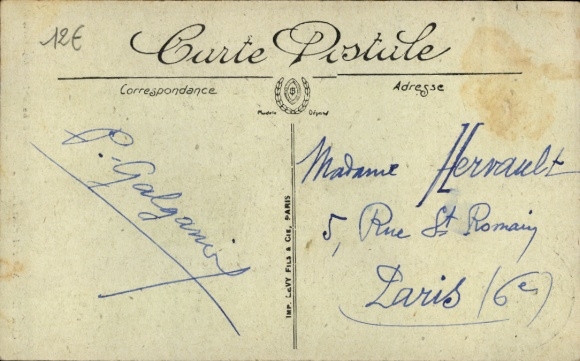 12€
Carte Postale
Correspondance
Adresse
Modèle Déposé
P. Galgani
Madame Hervault
5, Rue St Romain
Paris (6e)
IMP. LEVY FILS & CIE, PARIS